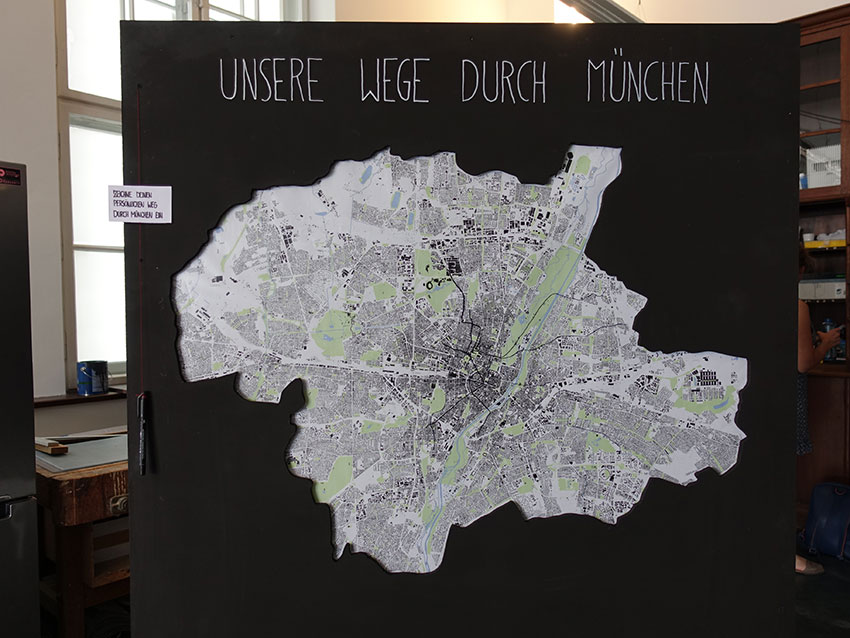 UNSERE WEGE DURCH MÜNCHEN
ZEICHNE DEINEN
PERSÖNLICHEN WEG
DURCH MÜNCHEN EIN